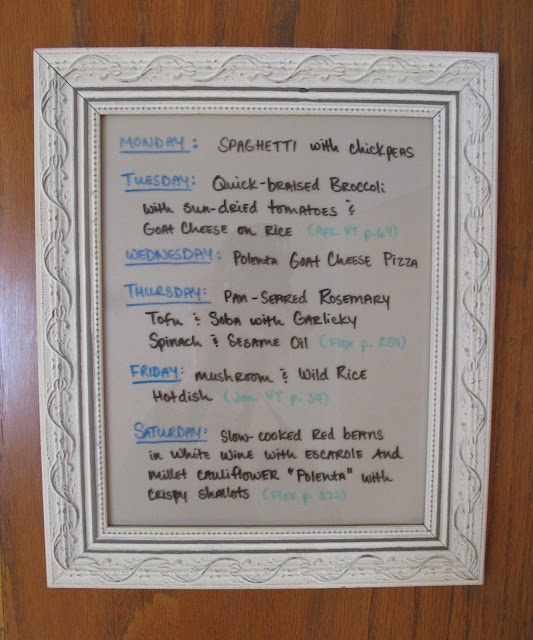 MONDAY: SPAGHETTI with chickpeas
TUESDAY: Quick-braised Broccoli
with sun-dried tomatoes &
Goat Cheese on Rice (Apr. VT p.64)
WEDNESDAY: Polenta Goat Cheese Pizza
THURSDAY: Pan-Seared Rosemary
Tofu & Soba with Garlicky
Spinach & Sesame Oil (Flex p. 254)
FRIDAY: mushroom & Wild Rice
Hotdish (Jan. VT p. 34)
SATURDAY: Slow-cooked Red beans
in white wine with escarole and
millet cauliflower "Polenta" with
crispy shallots (Flex p. 272)